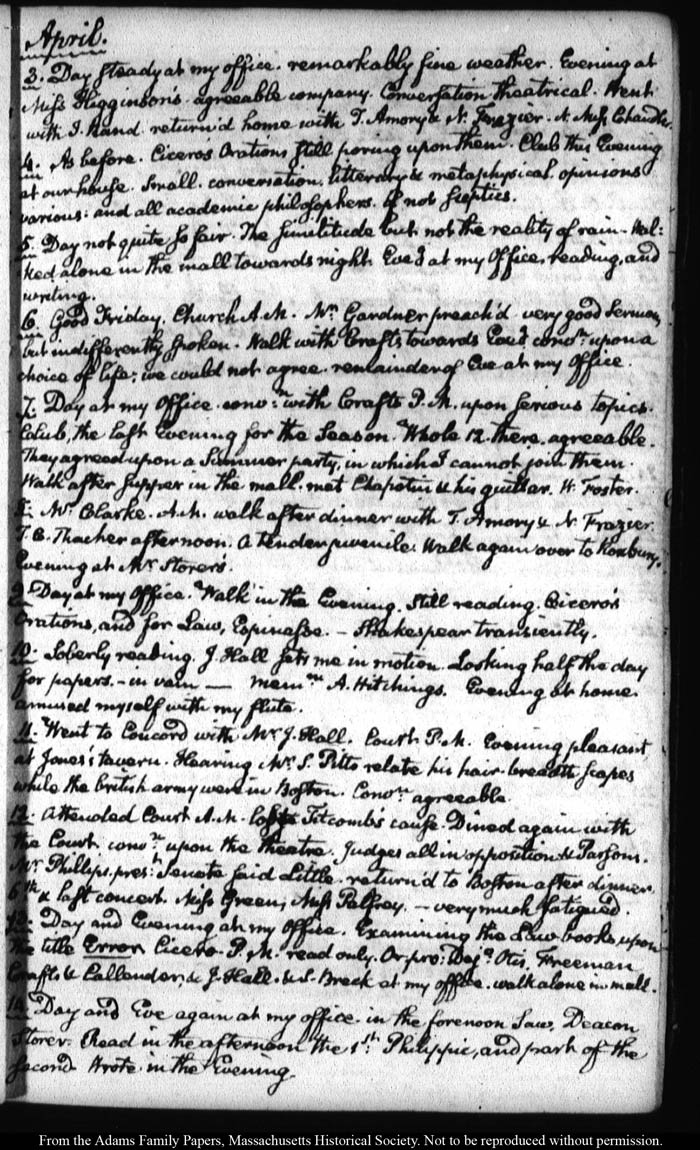 April.
3. Day steady at my office. remarkably fine weather. Evening at
Miss Higginson's. agreeable company. Conversation theatrical. Went
with J. Rand. return'd home with T. Amory & N. Frazier. N. Miss Chandler.
4. As before. Cicero's Orations still poring upon them. Club this Evening
at our house. Small. conversation. litterary & metaphysical. opinions
various: and all academic philosophers. if not sceptics.
5. Day not quite so fair. The similitude but not the reality of rain. Wal:
ked alone in the mall towards night. Eve.g at my Office, reading, and
writing.
6. Good Friday. Church A.M. Mr. Gardner preach'd very good Sermon,
but indifferently spoken. Walk with Crafts towards Eve.g convn. upon a
choice of life; we could not agree. remainder of Eve at my Office.
7. Day at my Office. convn. with Crafts P.M. upon serious topics.
Club, the last Evening for the Season. Whole 12 there. agreeable.
They agreed upon a Summer party, in which I cannot join them.
Walk after supper in the mall. met Chapotin & his guittar. W. Foster.
8. Mr. Clarke. A.M. walk after dinner with T. Amory & N. Frazier.
T. C. Thacher afternoon. A tender juvenile. Walk again over to Roxbury.
Evening at Mr. Storer's.
9. Day at my Office. Walk in the Evening. Still reading. Cicero's
Orations, and for Law, Espinasse. — Shakespear transiently.
10. Soberly reading. J. Hall sets me in motion. Looking half the day
for papers. — in vain — mem: A. Hitchings. Evening at home.
amused myself with my flute.
11. Went to Concord with Mr. J. Hall. Court P.M. Evening pleasant
at Jones's tavern. Hearing Mr. S. Pitts relate his hair-breadth scapes
while the british army were in Boston. Convn. agreeable.
12. Attended Court A.M. Titcomb's cause. Dined again with
the Court. convn. upon the theatre. Judges all in opposition & Parsons.
Mr. Phillips. prest. Senate said Little. return'd to Boston after dinner.
6th. & last concert. Miss Green, Miss Palfrey. — very much fatigued.
13. Day and Evening at my Office. Examining the Law books upon
the title Error. Cicero P.M. read only. Or. pro: Dej. Otis, Freeman
Crafts & Callender, & J. Hall. & S. Breck at my office. walk alone in mall.
14. Day and Eve again at my office. in the forenoon saw, Deacon
Storer. Read in the afternoon the 1st. Philippic, and part of the
second. Wrote in the Evening
From the Adams Family Papers, Massachusetts Historical Society. Not to be reproduced without permission.